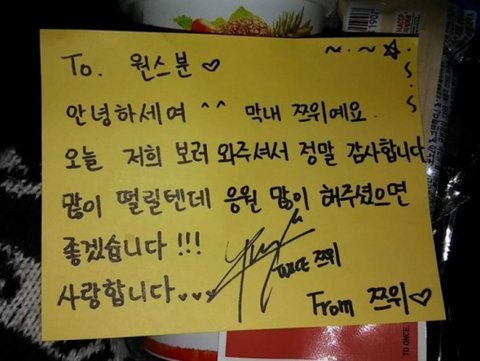 To. 원스분 ♡
안녕하세여 ^^ 막내 쯔위예요
오늘 저희 보러 와주셔서 정말 감사합니다
많이 떨릴텐데 응원 많이 해주셨으면
좋겠습니다 !!!
사랑합니다 ♥♥♥
TWICE 쯔위
From 쯔위♡
TO ONCE.